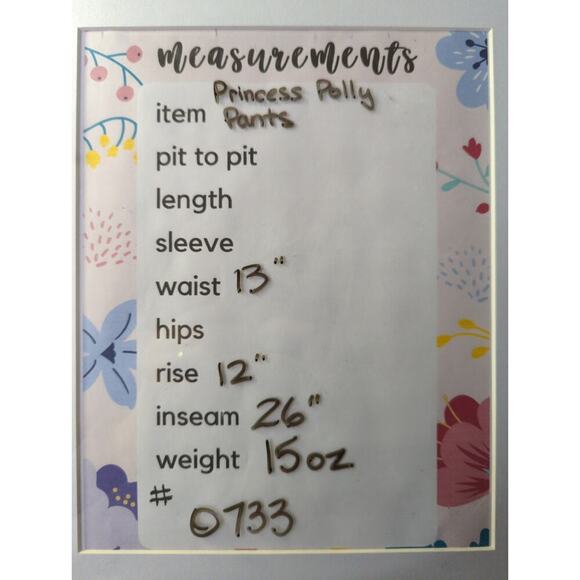 measurements
item Princess Polly
Pants
pit to pit
length
sleeve
waist 13"
hips
rise 12"
inseam 26"
weight 15oz
#
0733